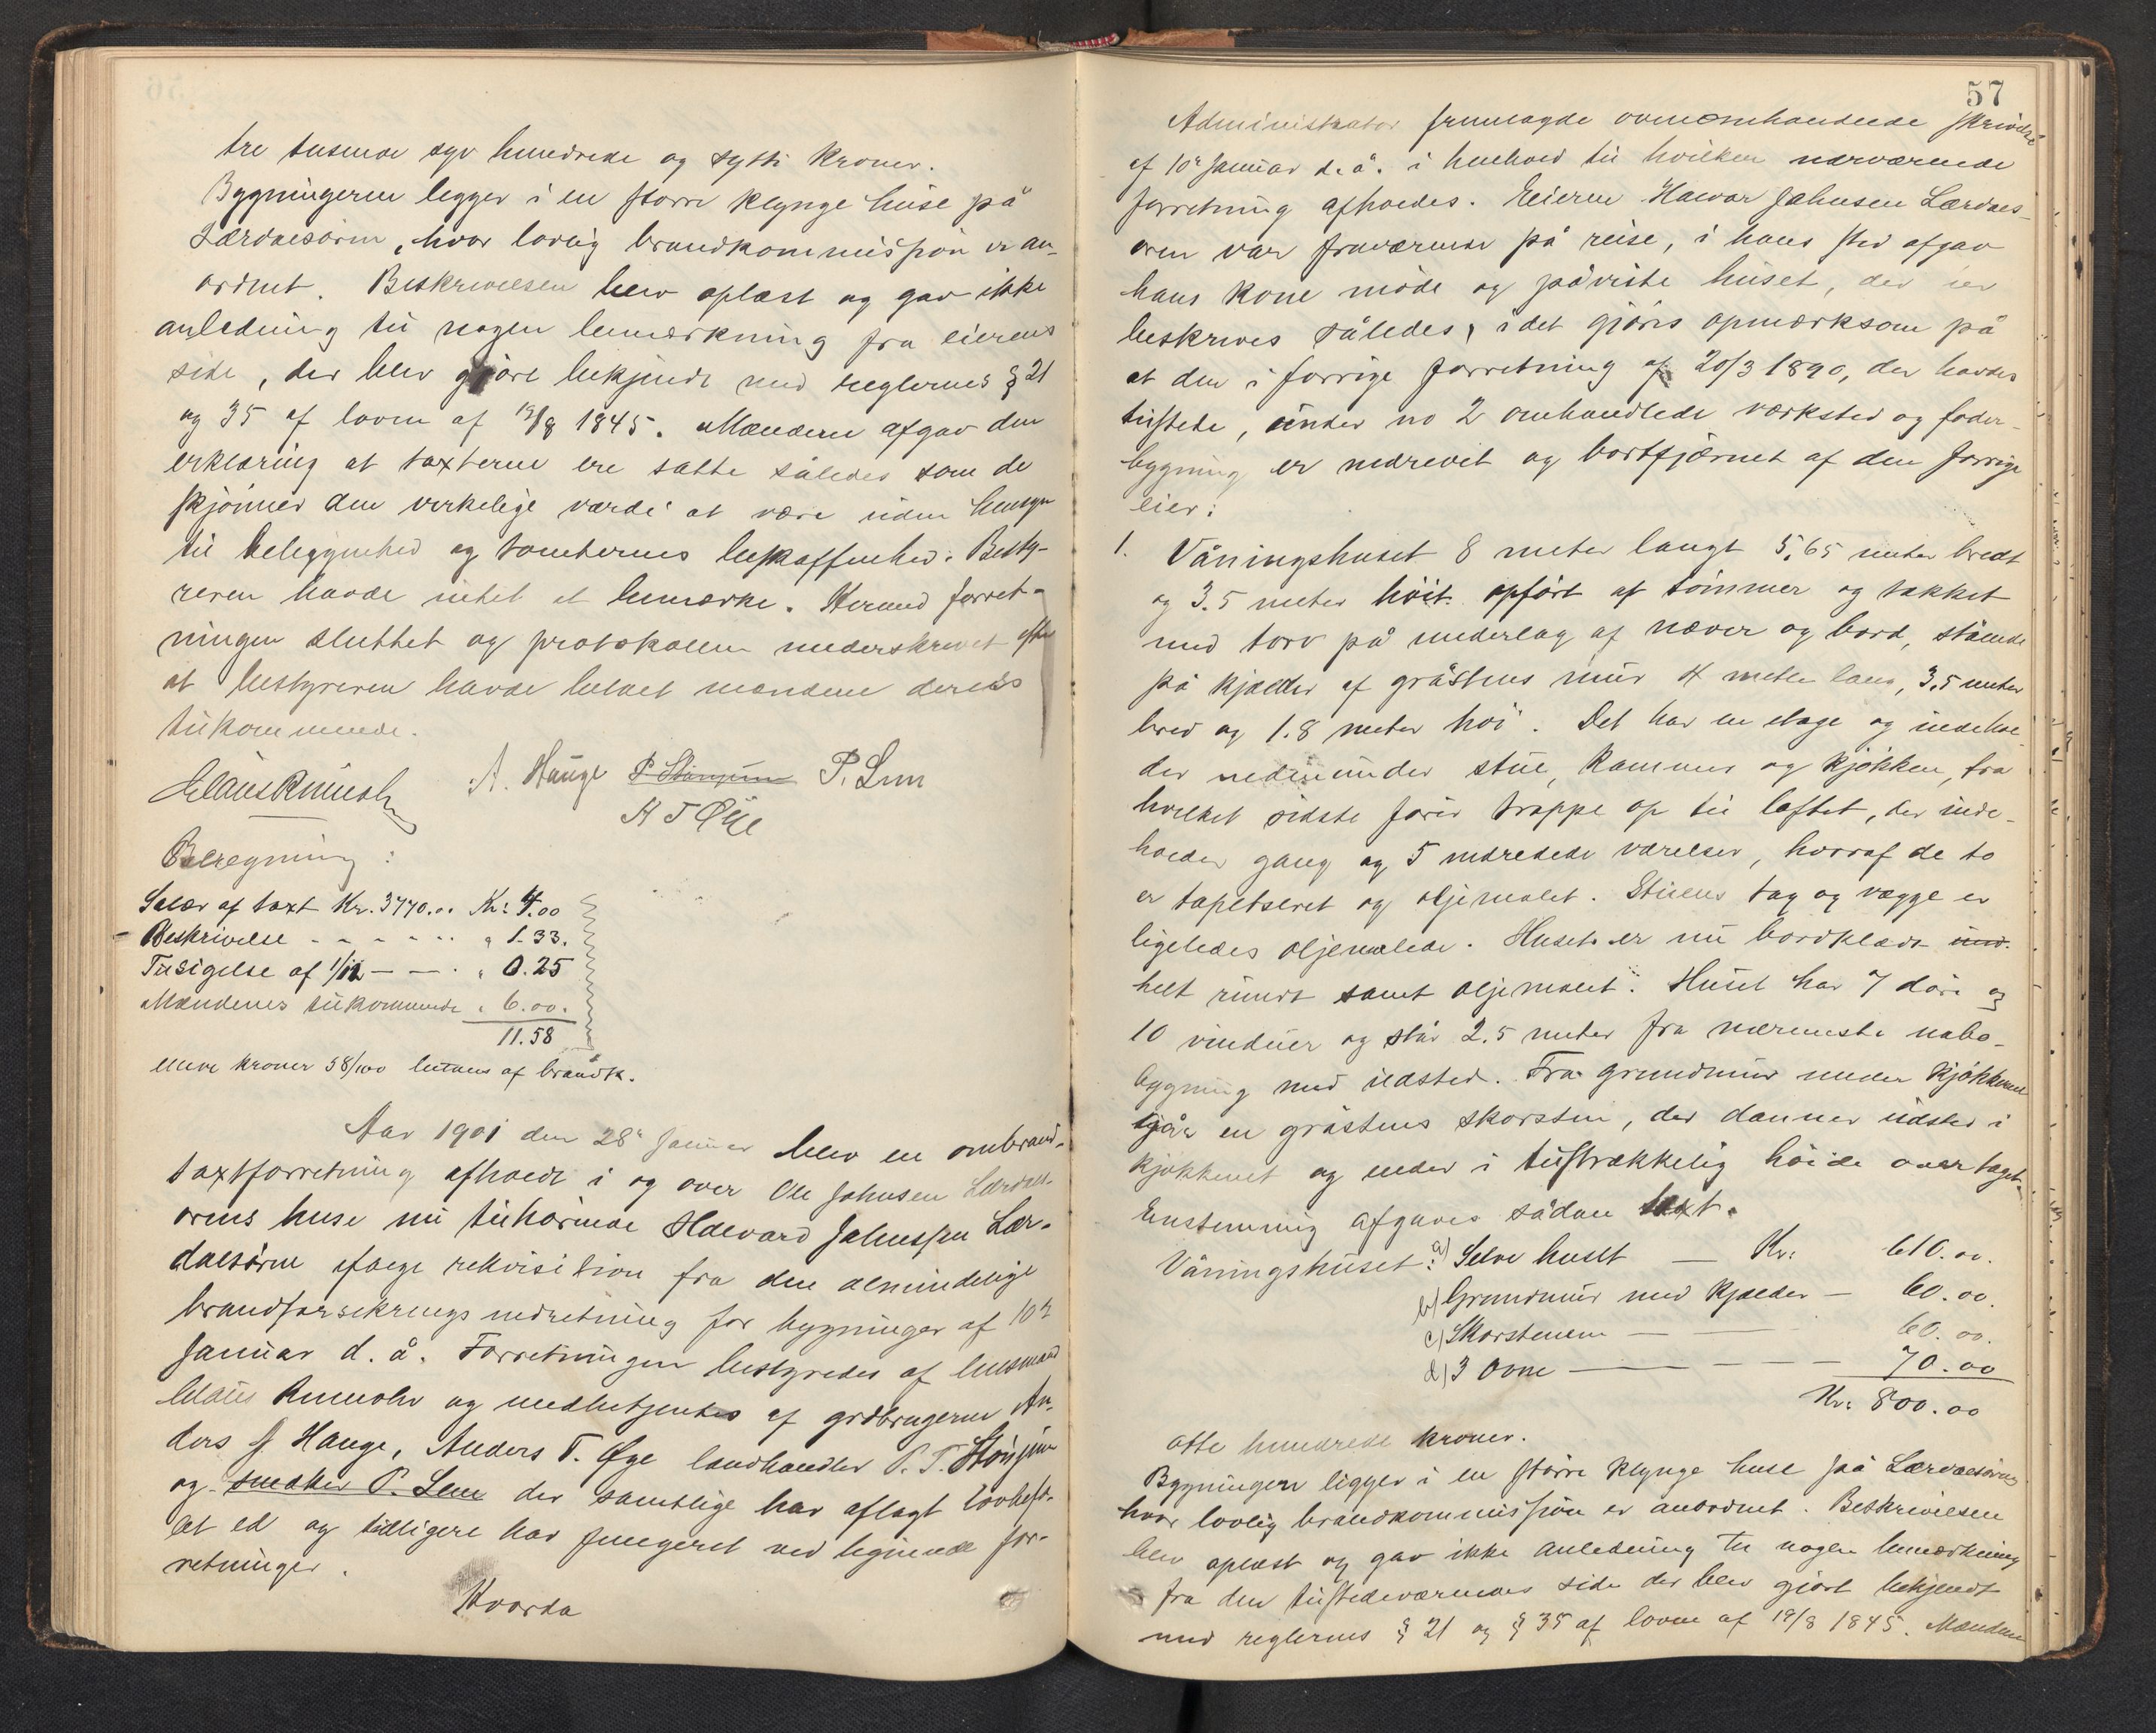 tre tusende syv hundrede og sytti kroner.
Bygningerne ligger i en større klynge huse på
Lærdalsøren, hvor lovlig brandkommission er an-
ordnet. Beskrivelsen blev oplæst og gav ikke
anledning til nogen bemærkning fra eierens
side, der blev gjort bekjendt med reglernes § 21
og 35 af loven af 19/8 1845. Mændene afgav den
erklæring at taxterne ere satte således som de
skjønner den virkelige værdi at være uden hensyn
til beliggenhed og tomternes beskaffenhed. Besty-
reren havde intet at bemærke. Hermed forret-
ningen sluttet og protokollen underskrevet efter
at bestyreren havde betalt mændene deres
tilkommende.
A. Hauge P. Stønjum P. Lem
A T Øye
Beregning:
Salær af taxt Kr. 3770.00 Kr: 4.00
Beskrivelse - - - - - " 1.33.
Tilsigelse af 1/12 - - " 0.25
Mændenes tilkommende " 6.00.
11.58
elleve kroner 58/100 betales af brandk.
Aar 1901 den 28de Januar blev en ombrand-
taxtforretning afholdt i og over Ole Johnsen Lærdals-
ørens huse nu tilhørende Halvard Johnsen Lær-
dalsøren ifølge rekvisition fra den almindelige
brandforsikringsindretning for bygninger af 10de
Januar d. å. Forretningen bestyredes af lensmand
Claus Rumohr og medbetjentes af grdbrugerne An-
ders J. Hauge, Anders T. Øye landhandler P. T. Stønjum
og snedker P. Lem der samtlige har aflagt lovbefa-
let ed og tidligere har fungeret ved lignende for-
retninger.
Hvorda
57
Administrator fremlagde ovenomhandlede skrivelse
af 10de Januar d. å. i henhold til hvilken nærværende
forretning afholdes. Eieren Halvar Johnsen Lærdals-
øren var fraværende på reise, i hans sted afgav
hans kone møde og påviste huset, der
beskrives således, idet gjøres opmærksom på
at den i forrige forretning af 20/3 1890, der havdes
tilstede, under no 2 omhandlede værksted og foder-
bygning er nedrevet og bortfjærnet af den forrige
eier:
1. Våningshuset 8 meter langt 5,65 meter bredt
og 3.5 meter høit opført af tømmer og takket
med torv på underlag af næver og bord, stående
på kjælder af gråstens mur 4 meter lang, 3,5 meter
bred og 1.8 meter høi. Det har en etage og indehol-
der nedenunder stue, kammer og kjøkken, fra
hvilket sidste fører trappe op til loftet, der inde-
holder gang og 5 indredede værelser, hvoraf de to
er tapetseret og oljemalet. Stuens tag og vægge er
ligeledes oljemalede. Huset er nu bordklædt
helt rundt samt oljemalet. Huset har 7 døre og
10 vinduer og står 2.5 meter fra nærmeste nabo-
bygning med ildsted. Fra grundmur under kjøkkenet
går en gråstens skorsten, der danner ildsted i
kjøkkenet og ender i tilstrækkelig høide over taget.
Enstemmig afgaves sådan taxt.
Våningshuset: a) Selve huset — Kr: 610.00.
b) Grundmur med kjælder — 60.00.
c) Skorstenen — — 60.00.
d) 3 ovne — — — 70.00
Kr: 800.00
otte hundrede kroner.
Bygningen ligger i en større klynge huse på Lærdalsøren
hvor lovlig brandkommission er anordnet. Beskrivelsen
blev oplæst og gav ikke anledning til nogen bemærkning
fra den tilstedeværendes side der blev gjort bekjendt
med reglernes § 21 og § 35 af loven af 19/8 1845. Mændene